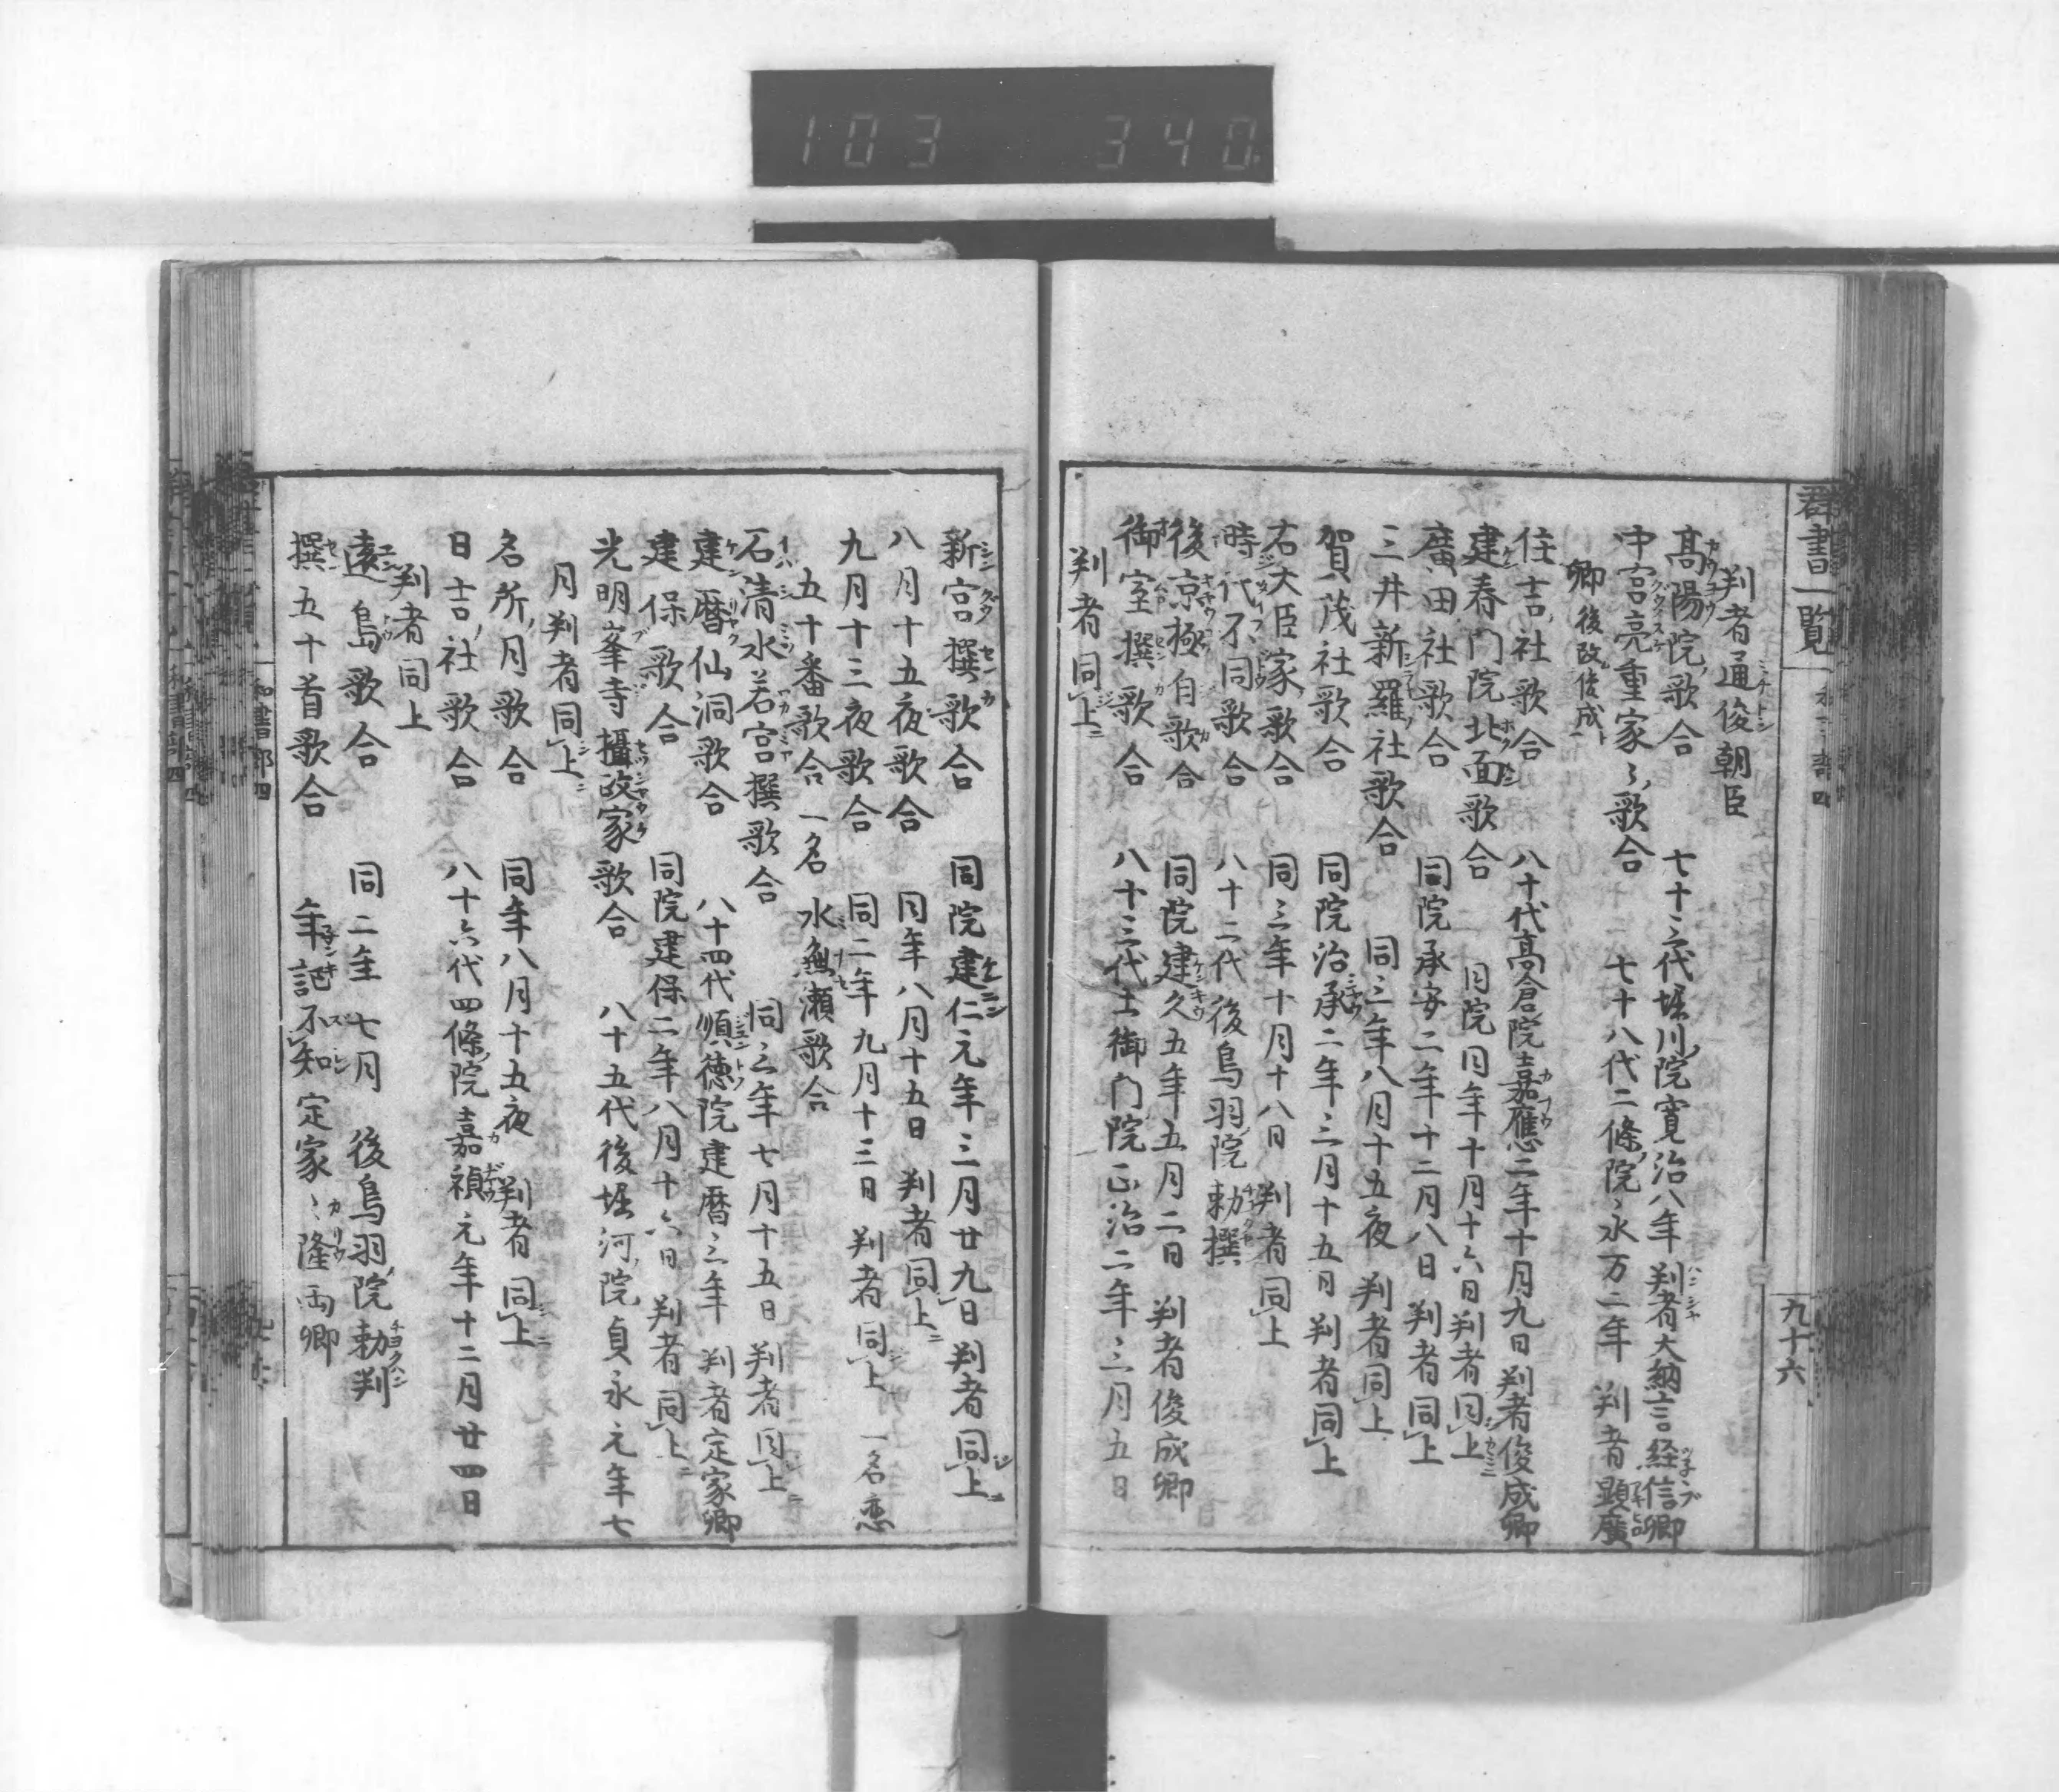 103 340
群書一覧
九十六
判者通俊朝臣
高陽院歌合 七十三代堀川院寛治八年 判者大納言経信卿
中宮亮重家〻歌合 七十八代二條院〻永万二年 判者顕廣
卿 後改俊成
住吉社歌合 八十代高倉院嘉應二年十月九日判者俊成卿
建春门院北面歌合 同院同年十月十六日判者同上
廣田社歌合 同院承安二年十二月八日 判者同上
三井新羅社歌合 同三年八月十五夜 判者同上
賀茂社歌合 同院治承二年三月十五日 判者同上
右大臣家歌合 同三年十月十八日 判者同上
時代不同歌合 八十二代 後鳥羽院勅撰
後京極自歌合 同院建久五年五月二日 判者俊成卿
御室撰歌合 八十三代土御门院正治二年三月五日
判者同上
新宮撰歌合 同院建仁元年三月廿九日判者同上
八月十五夜歌合 同年八月十五日 判者同上
九月十三夜歌合 同二年九月十三日 判者同上 一名恋
五十番歌合 一名 水無瀬歌合
石清水若宮撰歌合 同三年七月十五日 判者同上
建暦仙洞歌合 八十四代順徳院建暦三年 判者定家卿
建保歌合 同院建保二年八月十六日 判者同上
光明峯寺攝政家歌合 八十五代後堀河院貞永元年七
月判者同上
名所月歌合 同年八月十五夜 判者同上
日吉社歌合 八十六代四條院嘉禎元年十二月廿四日
判者同上
遠島歌合 同二年七月 後鳥羽院勅判
撰五十首歌合 年記不知 定家〻隆両卿